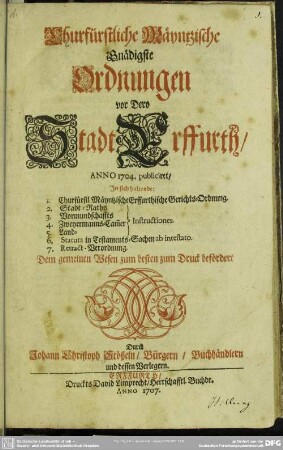 Churfürstliche Mäyntzische
Gnädigste
Ordnungen
vor Dero
Stadt Erffurth/
ANNO 1704. publiciret/
In sich haltende:
1. Churfürstl Mäyntzische Erffurthische Gerichts-Ordnung.
2. Stadt-Raths
3. Vormundschaffts
4. Zweyermanns-Cam̃er
5. Land-
Instructiones.
6. Statuta in Testaments-Sachen ab intestato.
7. Retract-Verordnung.
Dem gemeinen Wesen zum besten zum Druck befördert
Durch
Johann Christoph Stößeln/ Bürgern/ Buchhändlern
und dessen Verlegern.
ERFFURTH/
Druckts David Limprecht/ Herrschafftl. Buchdr.
ANNO 1707.